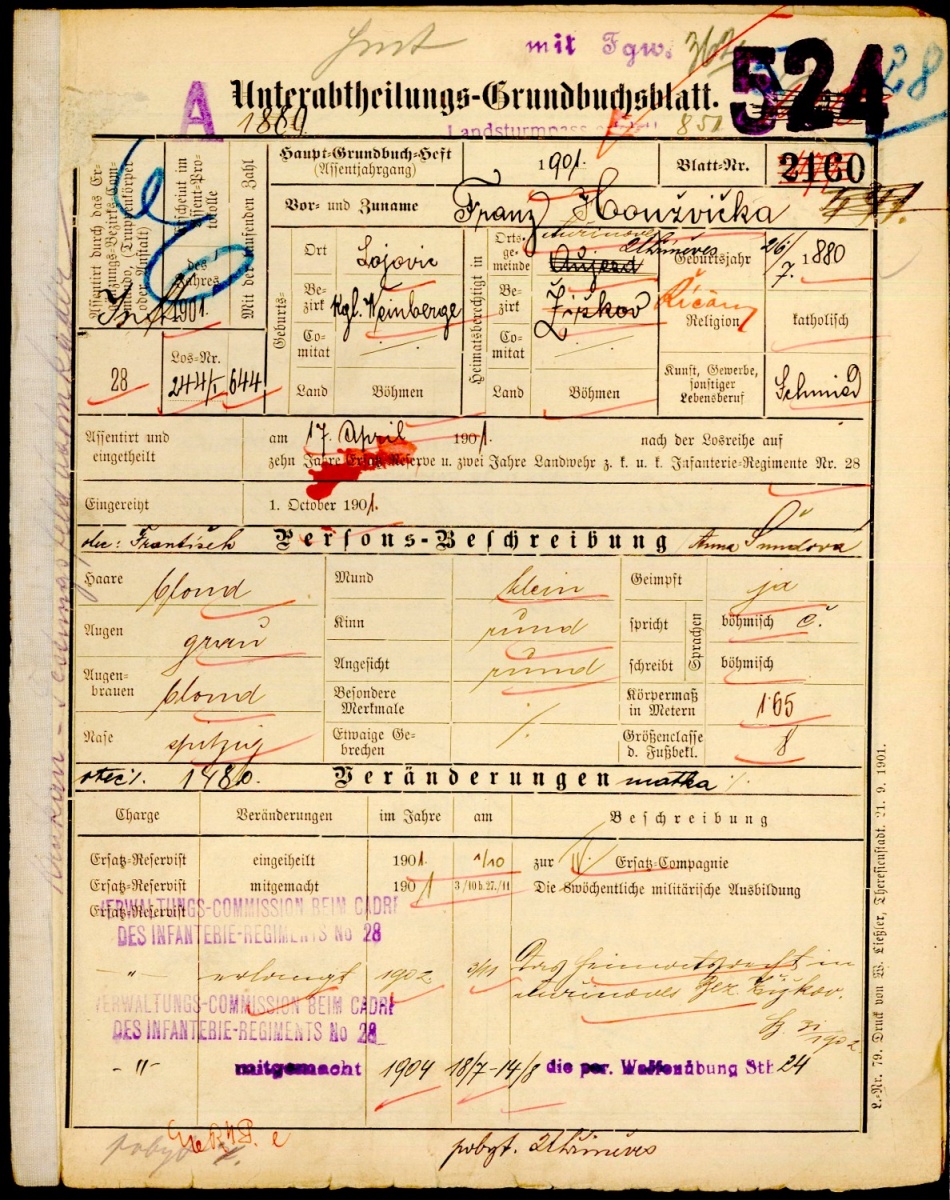 mit Fgw.
524
28
A
Unterabtheilungs-Grundbuchsblatt.
1880
851
Assentirt durch das Ergänzungs-Bezirks-Commando, (Truppenkörper oder Anstalt)
Erscheint im Assent-Protocolle
des Jahres
1901.
Mit der laufenden Zahl
28
Los-Nr.
244/I
644
Haupt-Grundbuch-Heft
(Assentjahrgang)
1901.
Blatt-Nr.
2160
Vor- und Zuname
Franz Houžvička
Geburts-
Ort
Lojovic
Bezirk
Kgl. Weinberge
Comitat
Land
Böhmen
Heimatsberechtigt in
Ortsgemeinde
Aujezd
Uhříněves
Bezirk
Žižkov
Říčany
Comitat
Land
Böhmen
Geburtsjahr
26/7. 1880
Religion
katholisch
Kunst, Gewerbe, sonstiger Lebensberuf
Schmied
Assentirt und eingetheilt
am 17. April 1901. nach der Losreihe auf
zehn Jahre Ersatz-Reserve u. zwei Jahre Landwehr z. k. u. k. Infanterie-Regimente Nr. 28
Eingereiht
1. October 1901.
otec: František
Persons-Beschreibung
Anna
Haare
blond
Mund
klein
Geimpft
ja
Augen
grau
Kinn
rund
Sprachen
spricht
böhmisch č.
Augenbrauen
blond
Angesicht
rund
schreibt
böhmisch
Besondere Merkmale
Körpermaß in Metern
1·65
Nase
spitzig
Etwaige Gebrechen
Größenclasse d. Fußbekl.
8
otec /.
1480.
Veränderungen
matka /.
Charge
Veränderungen
im Jahre
am
Beschreibung
Ersatz-Reservist
eingetheilt
1901.
1/10
zur IV. Ersatz-Compagnie
Ersatz-Reservist
mitgemacht
1901
3/10 b. 27./11
Die 8wöchentliche militärische Ausbildung
Ersatz-Reservist
VERWALTUNGS-COMMISSION BEIM CADRE
DES INFANTERIE-REGIMENTS No 28
-"-
erlangt
1902
3/11
Das Heimatsrecht in
Uhříněves Bez. Žižkov.
VERWALTUNGS-COMMISSION BEIM CADRE
DES INFANTERIE-REGIMENTS No 28
-"-
mitgemacht
1904
18/7-14/8
die per. Waffenübung Stb. 24
pobyt. Uhříněves
L.-Nr. 79. Druck von W. Ließler, Theresienstadt. 21. 9. 1901.